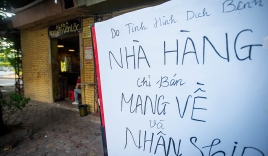 Do Tình Hình Dịch Bệnh
NHÀ HÀNG
chỉ Bán
MANG VỀ
và
NHẬN Ship